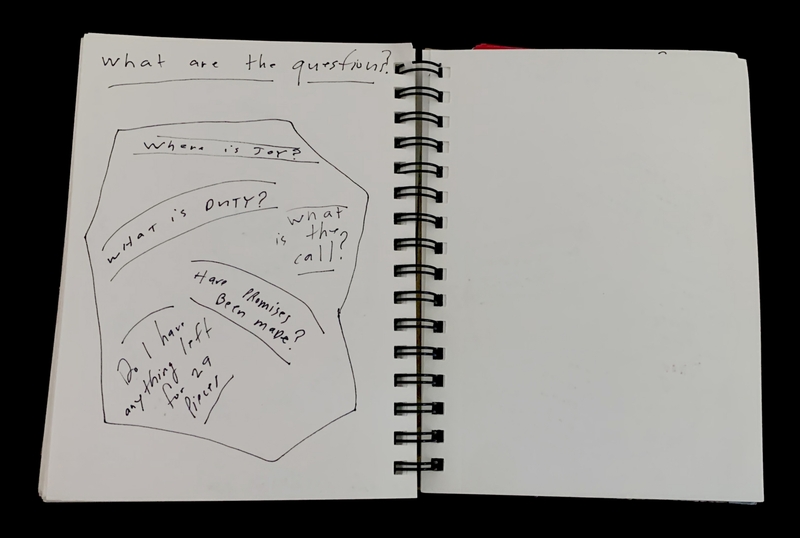 what are the questions?
Where is JOY?
WHAT is DUTY?
what
is the
call?
Have PROMISES
BEEN MADE?
Do I have
anything left
for 29
Pieces